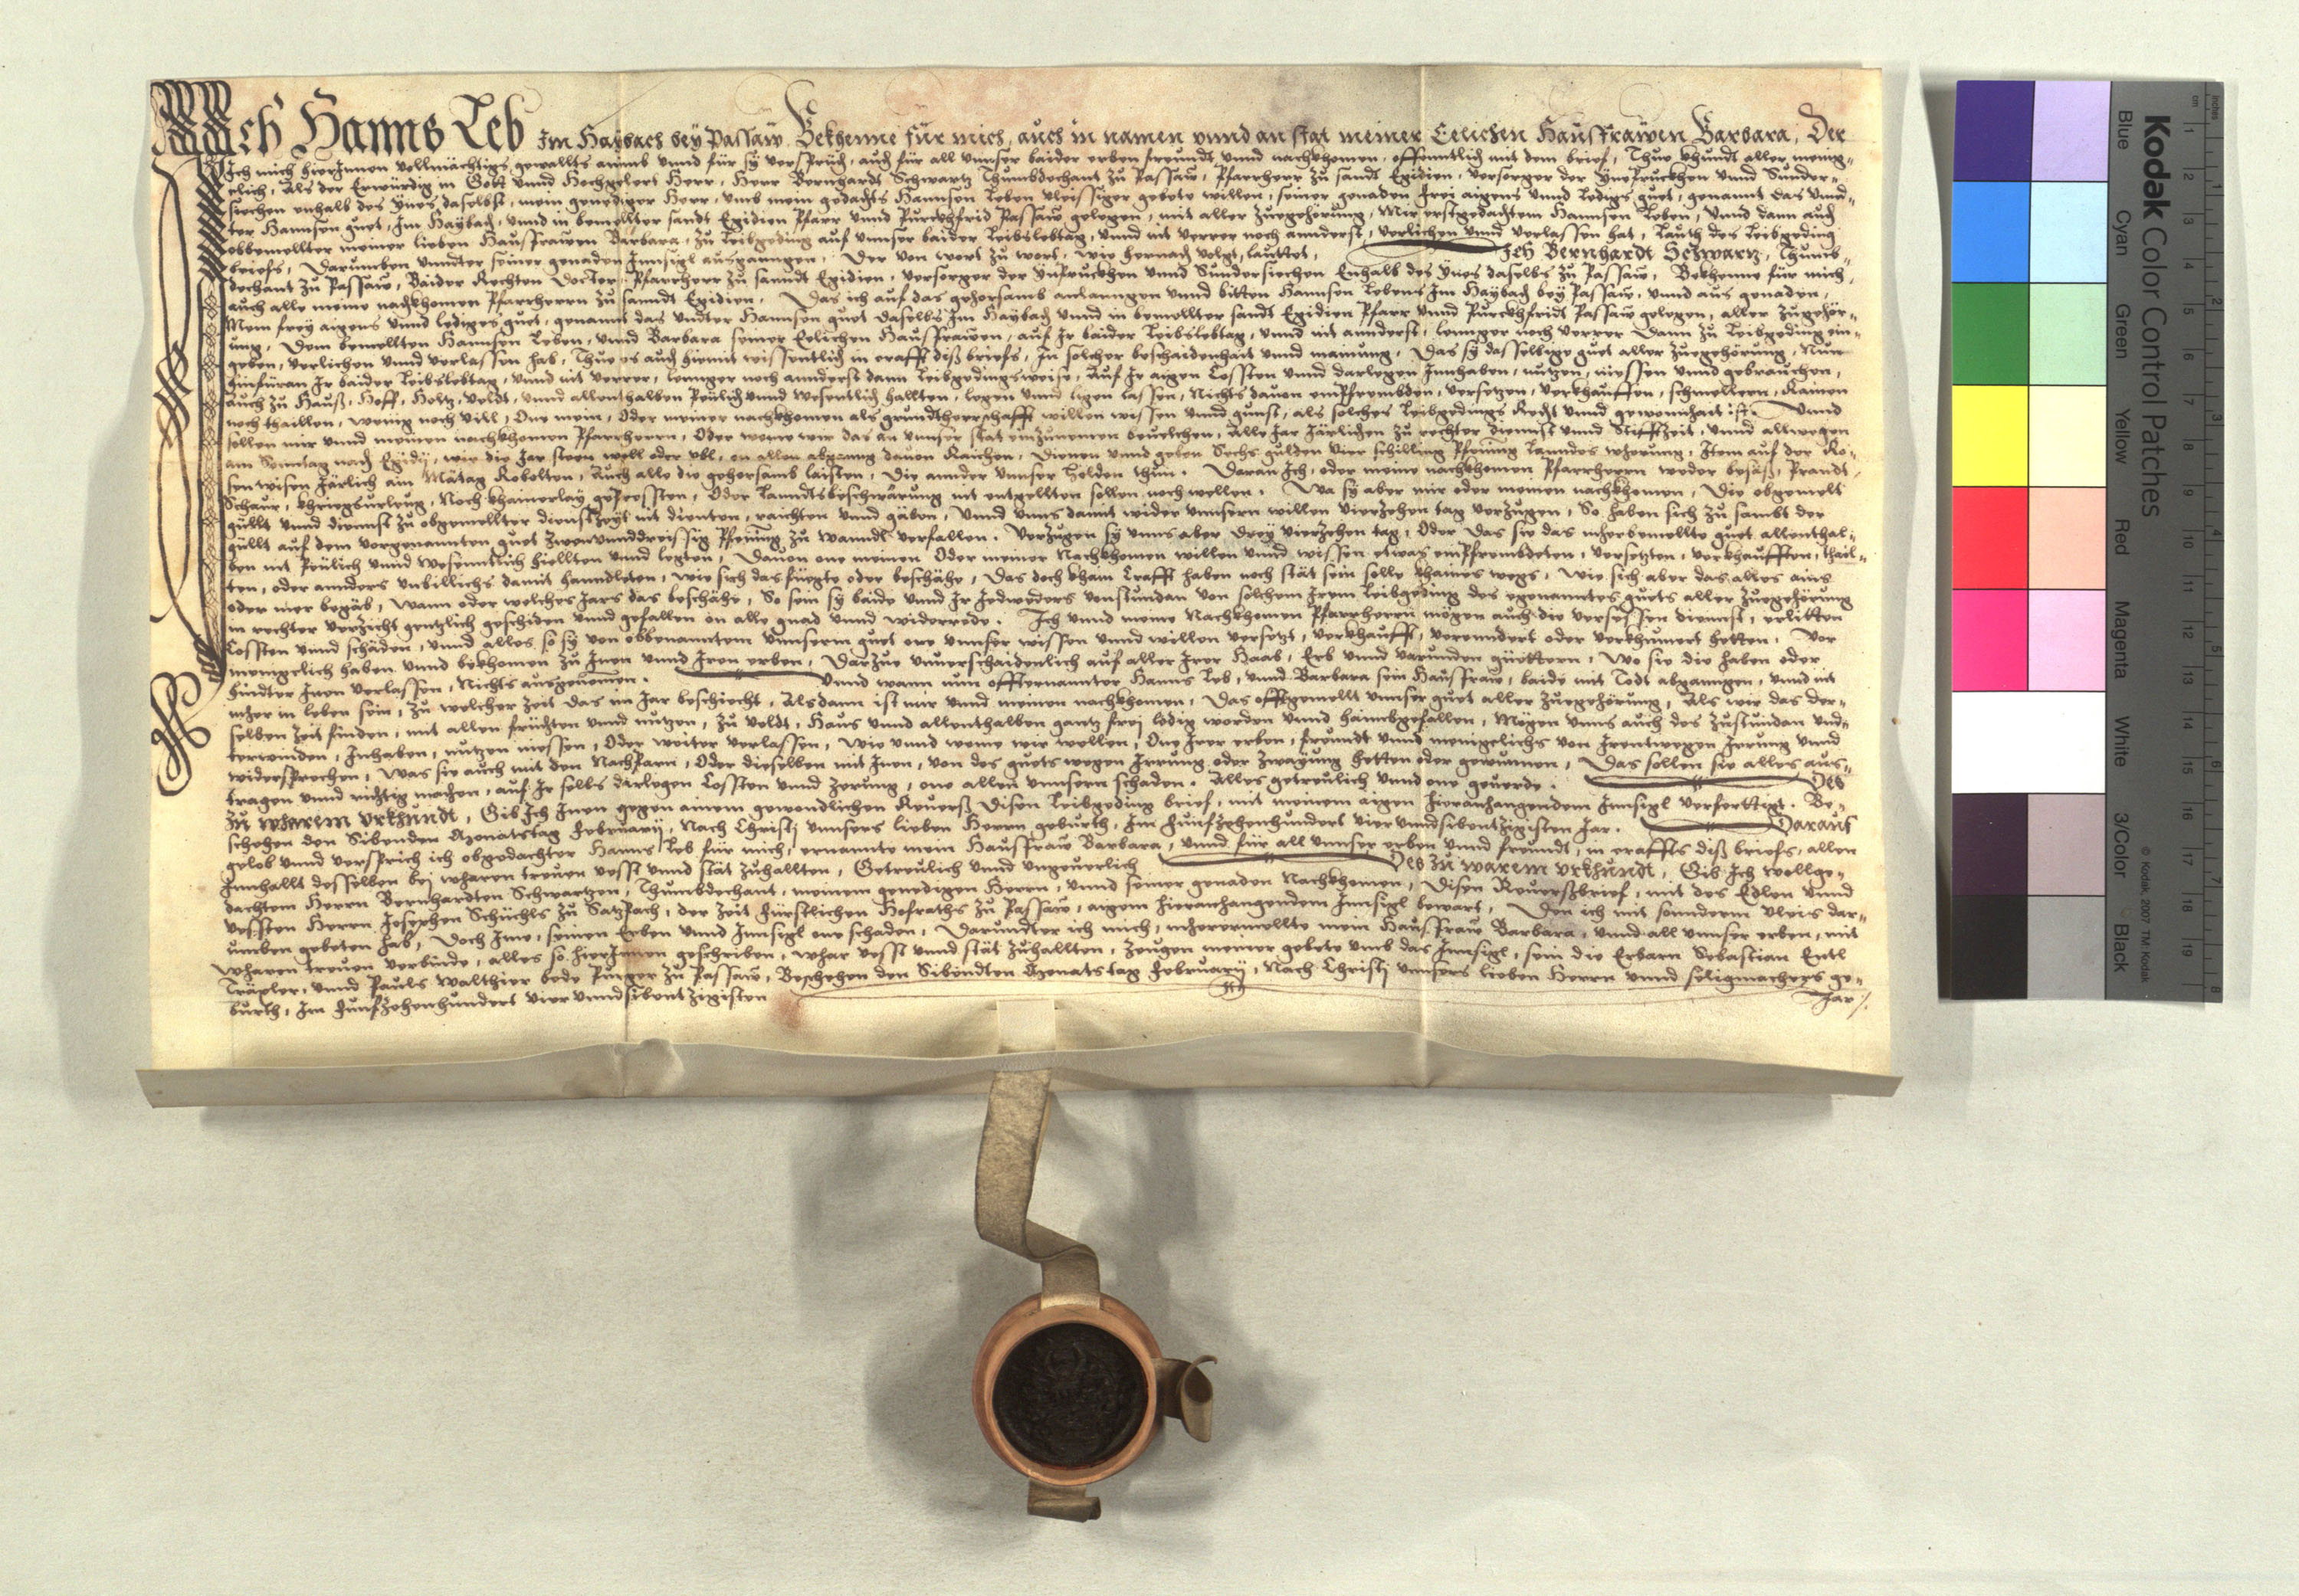 Ich Hanns Leb Im Haybach bey Passaw. Bekhenne für mich, auch in namen vnnd an stat meiner Eelichen Hausfrawen Barbara, Der
Ich mich hierInnen volmächtigs gewallts annib vnnd für sy versprich, auch für all vnnser baider erben freundt vnnd nachkhomen, offenntlich mit dem brief, Thue khundt aller menig-
elich, Als der Erwürdig in Gott vnnd Hochgelert Herr, Herr Bernhardt Schwartz Thumbdechant zu Passaw, Pfarrherr zu sandt Egidien, versorger der Ynnpruckhen vnnd Sunder-
siechen enhalb des Ynns daselbst, mein genediger Herr, vmb mein gedachts Hannsen Leben vleissiger gebete willen, seiner genaden frei aigens vnnd ledigs guet, genannt das vnnd-
ter Hannsen guet, Im Haybach, vnnd in bemellter sandt Egidien Pfarr vnnd Purckhfrid Passaw gelegen, mit aller zuegehörung, Mir erstgedachtem Hannsen Leben, vnnd dann auch
obbemellter meiner lieben Hausfrawen Barbara, zu leibgeding auf vnnser baider leibslebtag, vnnd nit verrer noch annderst, verlichen vnnd verlassen hat, Lauth des leibgeding
briefs, Darumben vnndter seiner genaden Innsigl ausgangen, Der von wort zu wort, wie hernach volgt, lauttet, Ich Bernhardt Schwarz, Thumb-
dechant zu Passaw, Baider Rechten Docter, Pfarrherr zu sanndt Egidien, versorger der Ynnpruckhen vnnd Sundersiechen Enhalb des Ynns daselbs zu Passaw, Bekhenne für mich,
auch alle meine nachkhomen Pfarrherrn zu sanndt Egidien, Das ich auf das gehorsamb anlanngen vnnd bitten Hannsen Lebens Im Haybach bey Passaw, vnnd aus genaden,
Mein frey aigens vnnd lediges guet, genannt das vndter Hannsen guet daselbs Im Haybach vnnd in bemellter sandt Egidien Pfarr vnnd Purckhfridt Passaw gelegen, aller zugehör-
ung, Dem bemellten Hannsen Leben, vnnd Barbara seiner Eelichen Hausfrawen, auf Ir baider leibslebtag, vnnd nit annderst, lennger noch verrer Dann zu leibgeding ein-
geben, verlichen vnnd verlassen hab, Thue es auch hiemit wissentlich in crafft diß briefs, In solcher beschaidenhait vnnd mainung, Das sy dasselbige guet aller zuegehörung, Nun
hinfüran Ir baider leibslebtag, vnnd nit verrer, lennger noch annderst dann leibgedingsweise, Auf Ir aigen Cossten vnnd darlegen Innhaben, nutzen, niessen vnnd gebrauchen,
Auch zu Hauß, Hoff, Holtz, Veldt, vnnd allenthalben peülich vnnd wesentlich hallten, legen vnnd ligen lassen, Nichts dauon empfrembden, versetzen, verkhauffen, schmellern, Rainen
noch thaillen, wenig noch vill, One mein, Oder meiner nachkhomen als grundtherrschafft willen wissen vnnd gunst, als solches leibgedings Recht vnnd gewonnhait ist. Vnnd
sollen mir vnnd meinen nachkhomen Pfarrherrn, Oder weme wir das an vnnser stat einzunemen beuelchen, Alle Jar Järlichen zu rechter dienst vnnd Stifftzeit, vnnd allwegen
am Sonntag nach Egidy, wie die Jar steen woll oder vbl, on allen abganng dauon Raichen, dienen vnnd geben Sechs gulden vier schilling Pfening Lanndes wherung, Item auf der Ro-
senwisen Järlich ain Mätag Robolten, Auch alle die gehorsamb laisten, Die annder vnnser holden thun. Daran Ich, oder meine nachkhomen Pfarrherrn weder besäß, Prandt,
Schaur, khriegsurleug, Noch khainerlay gepressten, Oder lanndtsbeschwärung nit entgellten sollen noch wellen. Wa sy aber mir oder meinen nachkhomen, Die obgemelt
güllt vnnd diennst zu obgemellter dienstzeyt nit dienten, raichten vnnd gäben, vnnd vnns damit wider vnnsern willen vierzehen tag verzugen, So haben sich zu sambt der
güllt auf dem vorgenannten guet Zwenvnnddreissig Pfening zu wanndl verfallen. Verzugen sy vnns aber drey vierzehen tag, Oder das sie das mherbemellte guet allenthal-
ben nit peülich vnnd wesenntlich hiellten vnnd legten, Dauon one meinen Oder meiner Nachkhomen willen vnnd wissen etwas empfrembdeten, versetzten, verkhaufften, thail-
ten, oder annders vnbillichs damit hanndleten, wie sich das fuegte oder beschähe, Das doch kham Crafft haben noch stät sein solle khaines wegs, Wie sich aber das alles ains
oder mer begäb, Wann oder welches Jars das beschähe, So sein sy baide vnnd Ir Jedweders vonstundan von solchem Irem leibgeding des egenanntes guets aller zuegehörung
in rechter verzicht gentzlich geschiden vnnd gefallen on alle gnad vnnd widerrede. Ich vnnd meine Nachkhomen Pfarrherrn mögen auch die versessen diennst, erlitten
Cossten vnnd schäden, vnnd alles so sy von obbenanntem vnnserm guet one vnnser wissen vnnd willen versetzt, verkhaufft, verenndert oder verkhumert hetten, Vor
menigelich haben vnnd bekhomen zu Inen vnnd Iren erben, Darzue vnuerschaidenlich auf aller Irer Haab, Erb vnnd varunden güettern, Wo sie die haben oder
hindter Inen verlassen, Nichts ausgenomen. Vnnd wann nun offternannter Hanns Leb, vnnd Barbara sein Hausfraw, baide mit Todt abganngen, vnnd nit
mher in leben sein, zu welcher zeit das im Jar beschiecht, Alsdann ist mir vnnd meinen nachkhomen, Das offtgemellt vnnser guet aller zuegehörung, Als wir das der-
selben zeit finden, mit allen früchten vnnd nutzen, zu Veldt, Haus vnnd allenthalben gantz frei ledig worden vnnd haimbgefallen, Mögen vnns auch des zustundan vnd-
terwinden, Inhaben, nutzen niessen, Oder weiter verlassen, wie vnnd weme wir wellen, One Irer erben, freundt vnnd menigelichs von Irentwegen Irrung vnnd
widersprechen, Was sie auch mit den Nachparn, Oder dieselben mit Inen, von des guets wegen Irrung oder zwayung hetten oder gewunnen, Das sollen sie alles aus-
tragen vnnd richtig machen, auf Ir selbs darlegen Cossten vnnd zerung, one allen vnnsern schaden. Alles getreulich vnnd one geuerde. Des
zu wharem vrkhundt, Gib Ich Inen gegen ainem gewondlichen Reuerß Disen leibgeding brief, mit meinem aigen hieranhangendem Innsigl verferttigt. Be-
schehen den Sibenden Monatstag February, Nach Christi vnnsers lieben Herrn geburth, Im Funfzehenhundert vier vnndsibentzigisten Jar. Darauf
gelob vnnd versprich ich obgedachter Hanns Leb für mich, ernannte mein Hausfraw Barbara, vnnd für all vnnser erben vnnd freundt, in craffts diß briefs, allen
Innhallt desselben bei wharen treuen vesst vnnd stät zuhallten, Getreulich vnnd vngeuerlich Des zu warem vrkhundt, Gib Ich wollge-
dachtem Herrn Bernhardten Schwartzen, Thumbdechant, meinem genedigen Herrn, vnnd seiner genaden Nachkhomen, Disen Reuerßbrief, mit des Edlen vnnd
vessten Herrn Josephen Schüchls zu Satzpach, der zeit Fürstlichen Hofraths zu Passaw, aigem hieranhangendem Innsigl bewart, Den ich mit sonnderm vleis dar-
umben gebeten hab, Doch Ime, seinen Erben vnnd Innsigl one schaden, Darundter ich mich, mherermellte mein Hausfraw Barbara, vnnd all vnnser erben, mit
wharen treuen verbinde, alles so hierInnen geschriben, whar vesst vnnd stät zuhallten, Zeugen meiner gebete vmb das Innsigl, sein die Erbarn Sebastian Entl
Träxler, vnnd Pauls Walthier bede Purger zu Passaw, Beschehen den Sibendten Monatstag February, Nach Christj vnnsers lieben Herrn vnnd seligmachers ge-
burth, Im Funfzehenhundert vier vnndsibentzigisten Jar
Kodak Color Control Patches
Blue Cyan Green Yellow Red Magenta White 3/Color Black
© Kodak, 2007 TM: Kodak
cm 1 2 3 4 5 6 7 8 9 10 11 12 13 14 15 16 17 18 19
inches 1 2 3 4 5 6 7 8